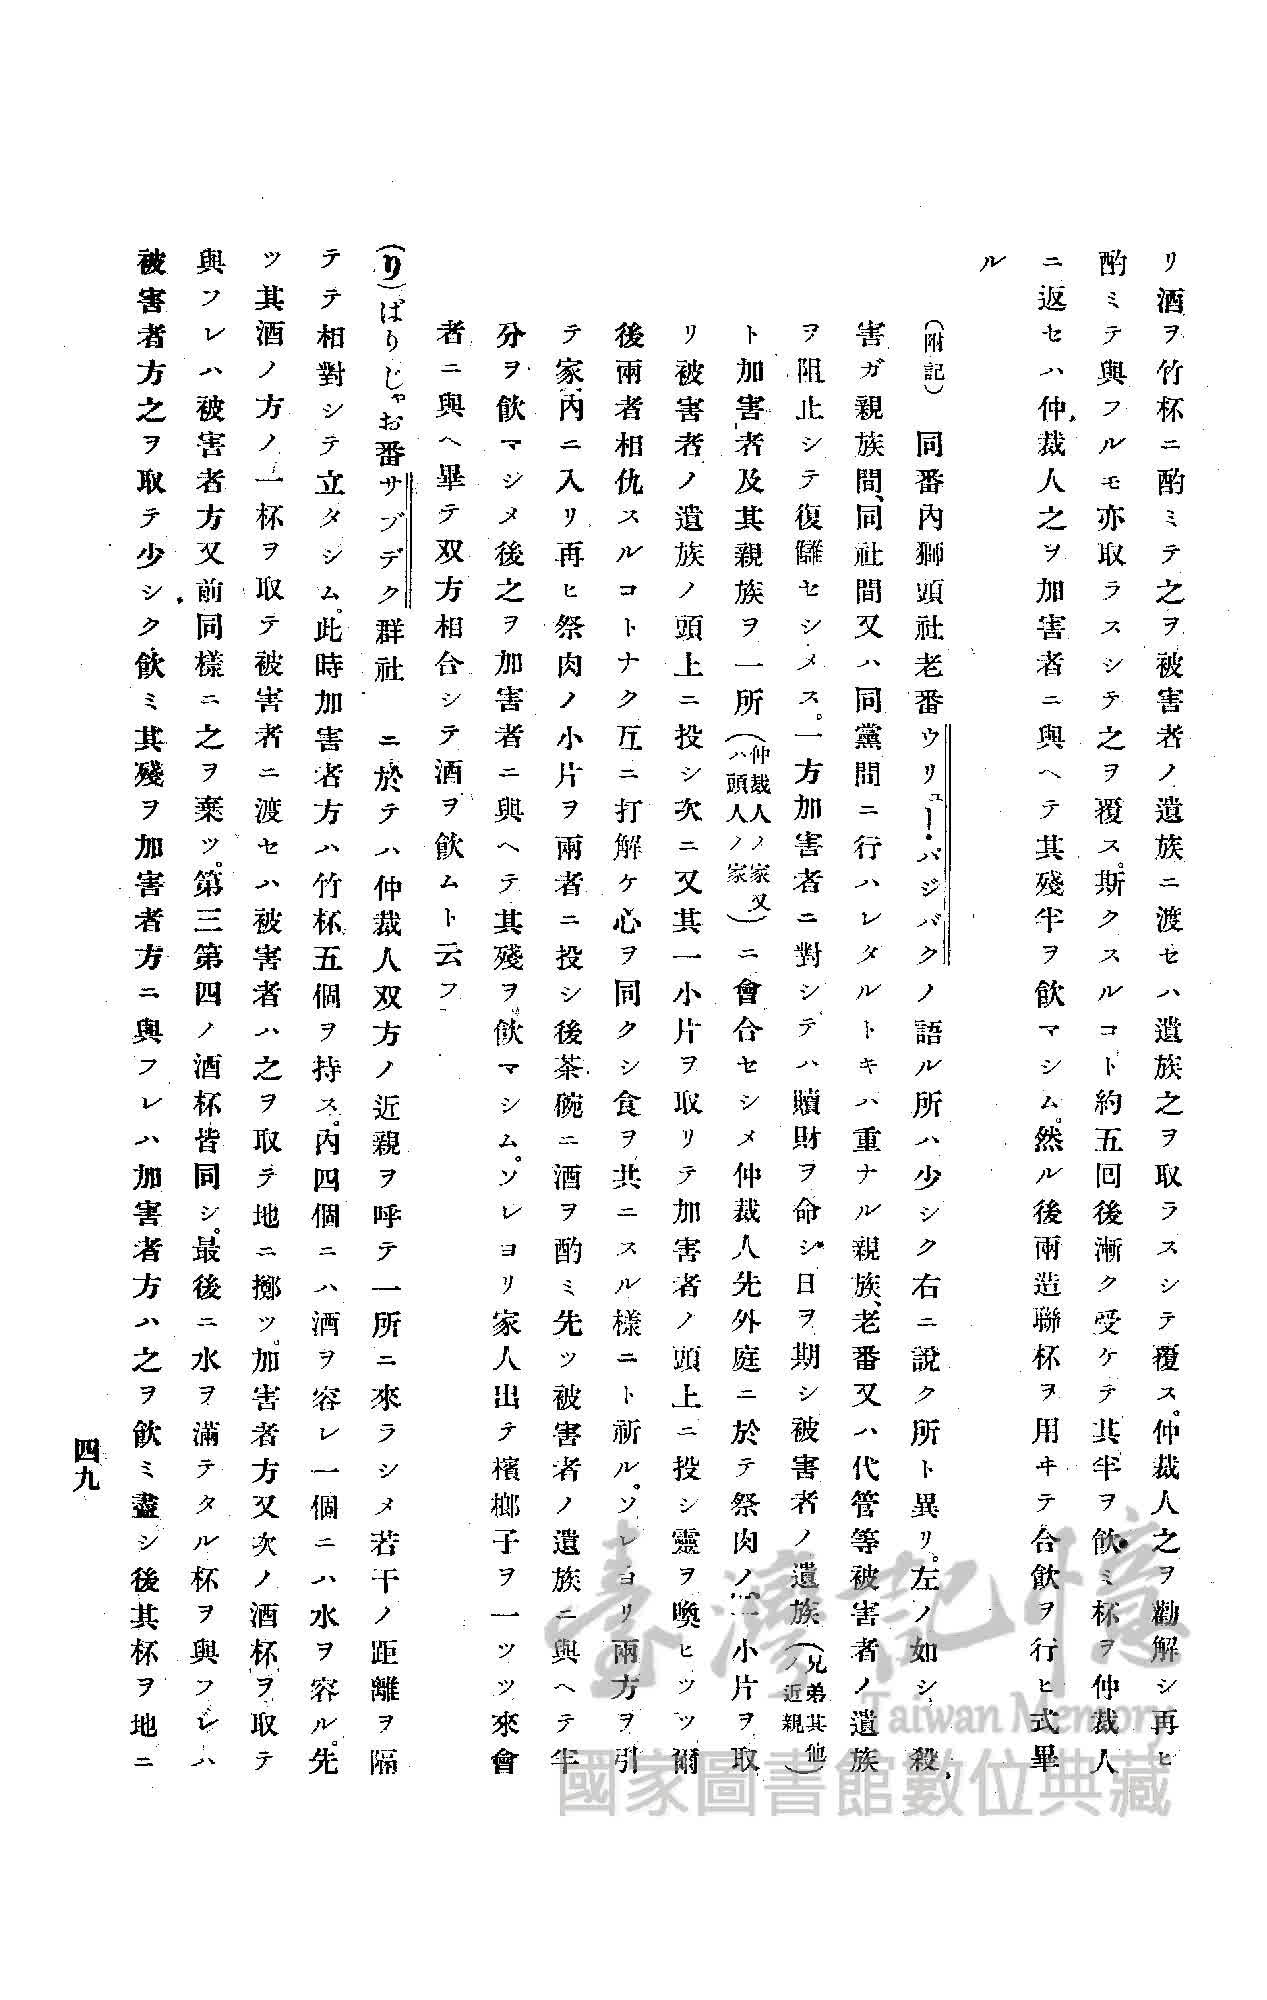 リ酒ヲ竹杯ニ酌ミテ之ヲ被害者ノ遺族ニ渡セハ遺族之ヲ取ラスシテ覆ス。仲裁人之ヲ勸解シ再ヒ
酌ミテ與フルモ亦取ラスシテ之ヲ覆ス。斯クスルコト約五回後漸ク受ケテ其半ヲ飮ミ杯ヲ仲裁人
ニ返セハ仲裁人之ヲ加害者ニ與ヘテ其殘半ヲ飮マシム。然ル後兩造聯杯ヲ用ヰテ合飮ヲ行ヒ式畢
ル
(附記) 同番內獅頭社老番ウリュー・パジパクノ語ル所ハ少シク右ニ說ク所ト異リ。左ノ如シ、殺
害ガ親族間、同社間又ハ同黨間ニ行ハレタルトキハ重ナル親族、老番又ハ代管等被害者ノ遺族
ヲ阻止シテ復讎セシメス。一方加害者ニ對シテハ贖財ヲ命シ日ヲ期シ被害者ノ遺族(兄弟其他ノ近親)
ト加害者及其親族ヲ一所(仲裁人ノ家又ハ頭人ノ家)ニ會合セシメ仲裁人先外庭ニ於テ祭肉ノ一小片ヲ取
リ被害者ノ遺族ノ頭上ニ投シ次ニ又其一小片ヲ取リテ加害者ノ頭上ニ投シ靈ヲ喚ヒツツ爾
後兩者相仇スルコトナク互ニ打解ケ心ヲ同クシ食ヲ共ニスル樣ニト祈ル。ソレヨリ兩方ヲ引
テ家內ニ入リ再ヒ祭肉ノ小片ヲ兩者ニ投シ後茶碗ニ酒ヲ酌ミ先ツ被害者ノ遺族ニ與ヘテ半
分ヲ飮マシメ後之ヲ加害者ニ與ヘテ其殘ヲ飮マシム。ソレヨリ家人出テ檳榔子ヲ一ツツツ來會
者ニ與ヘ畢テ双方相合シテ酒ヲ飮ムト云フ
(り)ぱりじゃお番サブデク群社 ニ於テハ仲裁人双方ノ近親ヲ呼テ一所ニ來ラシメ若干ノ距離ヲ隔
テテ相對シテ立タシム。此時加害者方ハ竹杯五個ヲ持ス。內四個ニハ酒ヲ容レ一個ニハ水ヲ容ル。先
ツ其酒ノ方ノ一杯ヲ取テ被害者ニ渡セハ被害者ハ之ヲ取テ地ニ擲ツ。加害者方又次ノ酒杯ヲ取テ
與フレハ被害者方又前同樣ニ之ヲ棄ツ。第三第四ノ酒杯皆同シ。最後ニ水ヲ滿テタル杯ヲ與フレハ
被害者方之ヲ取テ少シク飮ミ其殘ヲ加害者方ニ與フレハ加害者方ハ之ヲ飮ミ盡シ後其杯ヲ地ニ
四九
臺灣記憶
Taiwan Memory
國家圖書館數位典藏